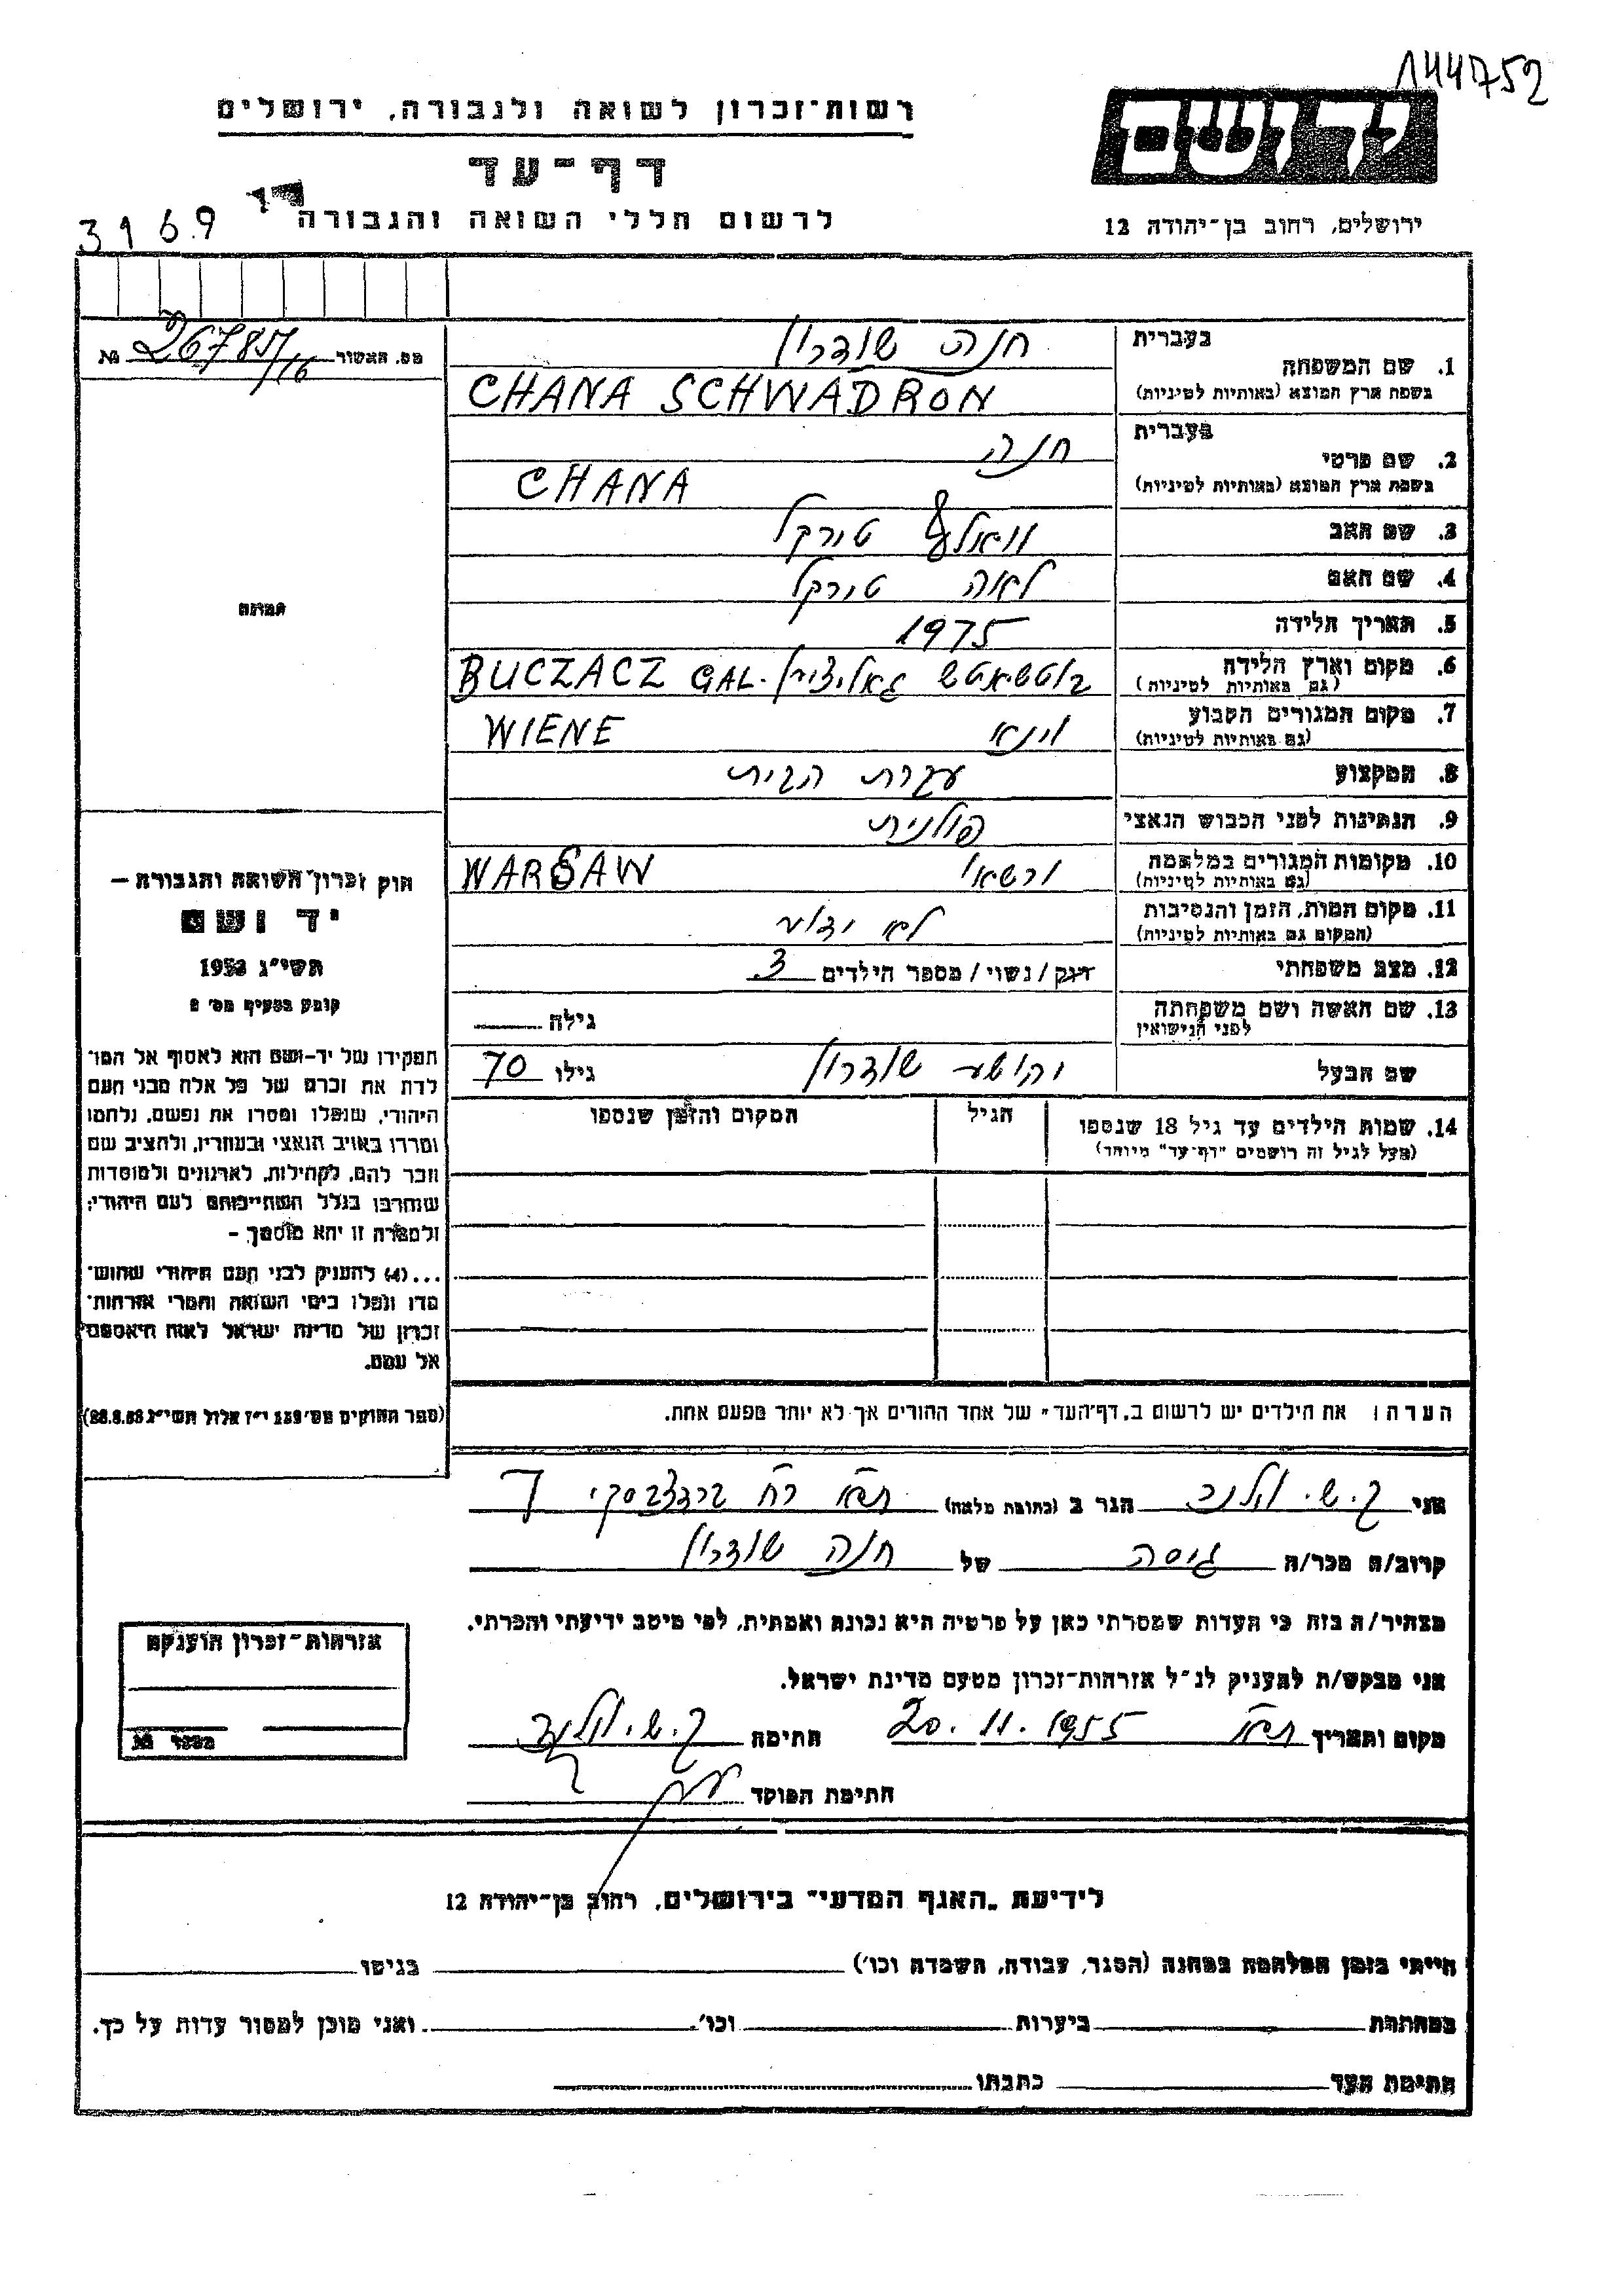 1441752
רשות־זכרון לשואה ולגבורה, ירושלים
דף־עד
לרשום חללי השואה והגבורה
3169
יד ושם
ירושלים, רחוב בן־יהודה 12
מס. האשור № 26785/16
תמונה
בעברית חנה שודרון
1. שם המשפחה
בשפת ארץ המוצא (באותיות לטיניות) CHANA SCHWADRON
בעברית חנה
2. שם פרטי
בשפת ארץ המוצא (באותיות לטיניות) CHANA
3. שם האב טורקל
4. שם האם לאה טורקל
5. תאריך הלידה 1975
6. מקום וארץ הלידה בוטשאטש גאליציין BUCZACZ GAL.
(גם באותיות לטיניות)
7. מקום המגורים הקבוע ווינא WIENE
(גם באותיות לטיניות)
8. המקצוע עקרת הבית
9. הנתינות לפני הכבוש הנאצי פולנית
10. מקומות המגורים במלחמה ורשאו WARSAW
(גם באותיות לטיניות)
11. מקום המות, הזמן והנסיבות לא ידוע
(המקום גם באותיות לטיניות)
12. מצב משפחתי רווק / נשוי / מספר הילדים 3
13. שם האשה ושם משפחתה גילה
לפני הנישואין
שם הבעל שודרון גילו 70
14. שמות הילדים עד גיל 18 שנספו הגיל המקום והזמן שנספו
(מעל לגיל זה רושמים "דף־עד" מיוחד)
חוק זכרון השואה והגבורה —
יד ושם
תשי"ג 1953
קובע בסעיף מס' 2
תפקידו של יד־ושם הוא לאסוף אל המו־
לדת את זכרם של כל אלה מבני העם
היהודי, שנפלו ומסרו את נפשם, נלחמו
ומרדו באויב הנאצי ובעוזריו, ולהציב שם
וזכר להם, לקהילות, לארגונים ולמוסדות
שנחרבו בגלל השתייכותם לעם היהודי;
ולמטרה זו יהא מוסמך —
...(4) להעניק לבני העם היהודי שהוש־
מדו ונפלו בימי השואה והמרי אזרחות־
זכרון של מדינת ישראל לאות היאספם
אל עמם.
(ספר החוקים מס' 132 י"ז אלול תשי"ג 28.8.53)
הערה: את הילדים יש לרשום ב„דף־העד" של אחד ההורים אך לא יותר מפעם אחת.
אני הגר ב (כתובת מלאה) ת"א רח' 7
קרוב/ה מכר/ה גיסה של חנה שודרון
מצהיר/ה בזה כי העדות שמסרתי כאן על פרטיה היא נכונה ואמתית, לפי מיטב ידיעתי והכרתי.
אני מבקש/ת להעניק לנ"ל אזרחות־זכרון מטעם מדינת ישראל.
מקום ותאריך ת"א 20.11.1955 חתימה
חתימת הפוקד
אזרחות־זכרון הוענקה
מספר №
לידיעת „האגף המדעי" בירושלים, רחוב בן־יהודה 12
הייתי בזמן המלחמה במחנה (הסגר, עבודה, השמדה וכו') בגיטו
במחתרת ביערות וכו'. ואני מוכן למסור עדות על כך.
חתימת העד כתבתו